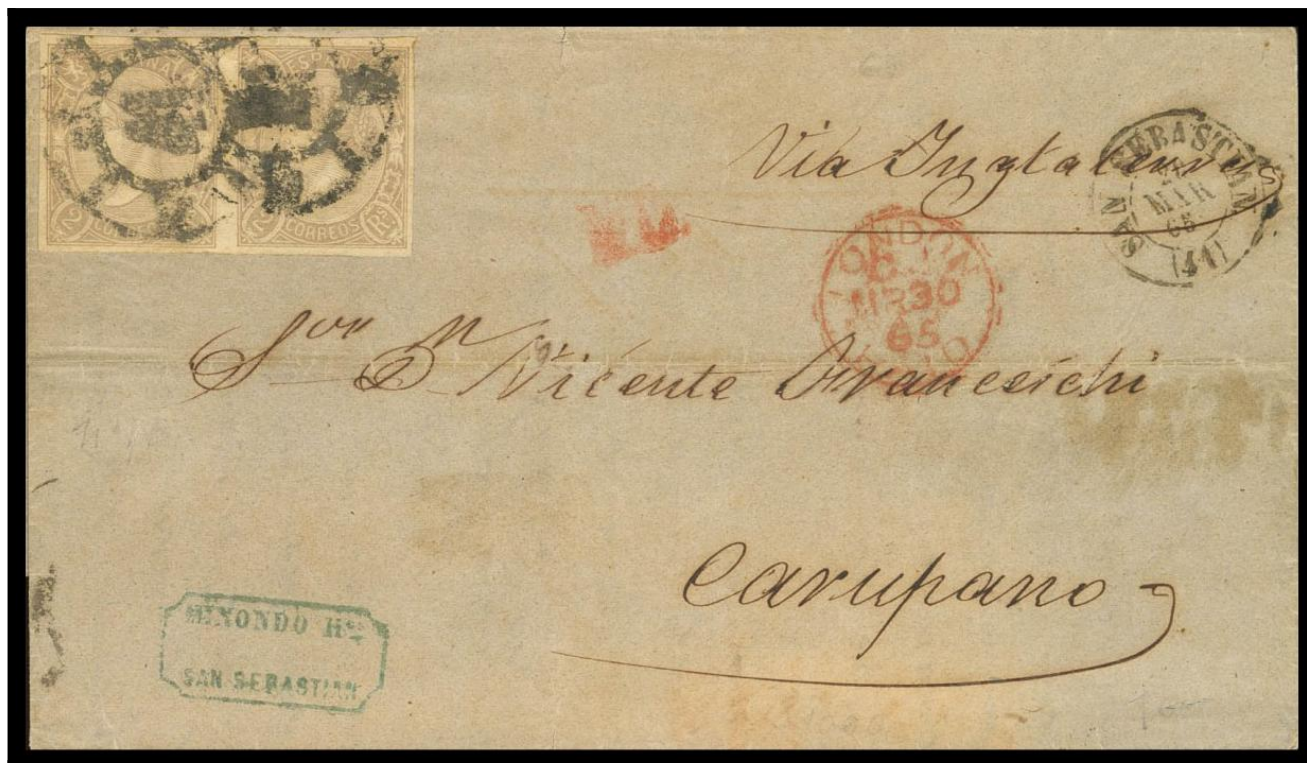 ESPAÑA
2 CORREOS RS
Via Inglaterra
SAN SEBASTIAN
MAR
65
(11)
LONDON
MR 30
65
PAID
Sor Dn Vicente Franceschi
Carupano
MINONDO Hos
SAN SEBASTIAN